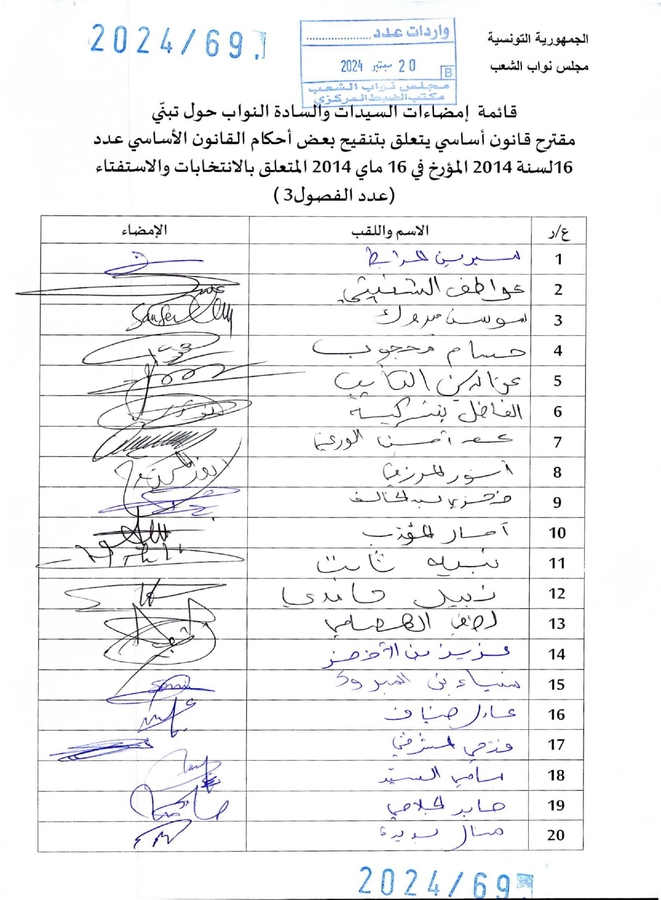 2024/69
واردات عدد
20 سبتمبر 2024
B
مجلس نواب الشعب
مكتب الضبط المركزي
الجمهورية التونسية
مجلس نواب الشعب
قائمة إمضاءات السيدات والسادة النواب حول تبنّي
مقترح قانون أساسي يتعلق بتنقيح بعض أحكام القانون الأساسي عدد
16لسنة 2014 المؤرخ في 16 ماي 2014 المتعلق بالانتخابات والاستفتاء
(عدد الفصول3 )
ع/ر الاسم واللقب الإمضاء
1 سيرين المرابط
2 عواطف الشنيتي
3 سوسن مبروك
4 حسام محجوب
5 عزالدين التايب
6 الفاضل بنتركية
7 الورغي
8 أنور المرزوقي
9 فخري عبد الخالق
10
11 نبيه ثابت
12 نبيل حامدي
13 لطفي الهمامي
14 عزيز بن الأخضر
15 ضياء بن المبروك
16 عادل ضياف
17 فتحي المشرقي
18 سامي السيد
19 صابر الجلاصي
20 منال بديدة
2024/69